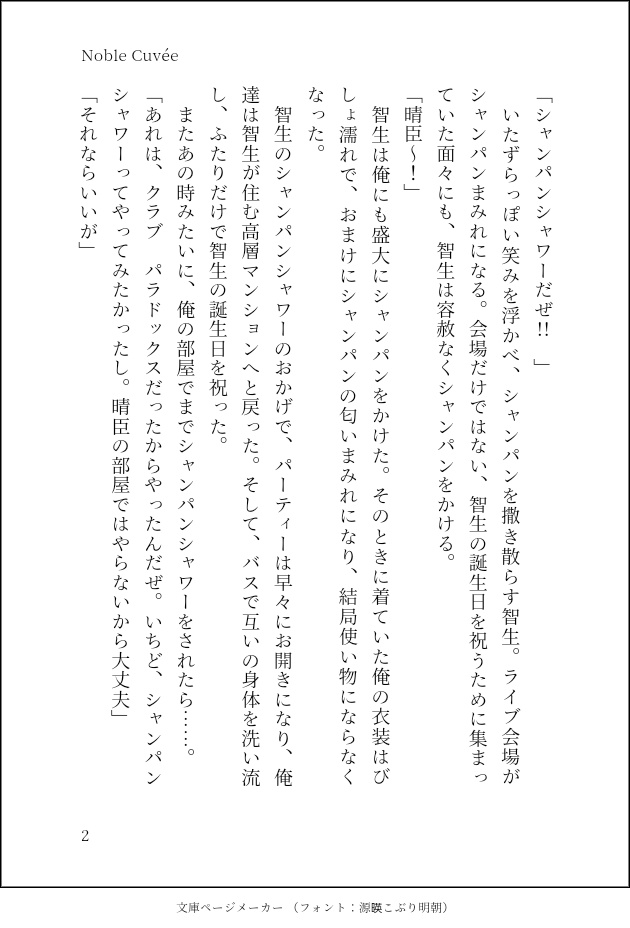 Noble Cuvée
「シャンパンシャワーだぜ!!　」
　いたずらっぽい笑みを浮かべ、シャンパンを撒き散らす智生。ライブ会場が
シャンパンまみれになる。会場だけではない、智生の誕生日を祝うために集まっ
ていた面々にも、智生は容赦なくシャンパンをかける。
「晴臣〜！」
　智生は俺にも盛大にシャンパンをかけた。そのときに着ていた俺の衣装はび
しょ濡れで、おまけにシャンパンの匂いまみれになり、結局使い物にならなく
なった。
　智生のシャンパンシャワーのおかげで、パーティーは早々にお開きになり、俺
達は智生が住む高層マンションへと戻った。そして、バスで互いの身体を洗い流
し、ふたりだけで智生の誕生日を祝った。
　またあの時みたいに、俺の部屋でまでシャンパンシャワーをされたら……。
「あれは、クラブ　パラドックスだったからやったんだぜ。いちど、シャンパン
シャワーってやってみたかったし。晴臣の部屋ではやらないから大丈夫」
「それならいいが」
2
文庫ページメーカー（フォント：源暎こぶり明朝）